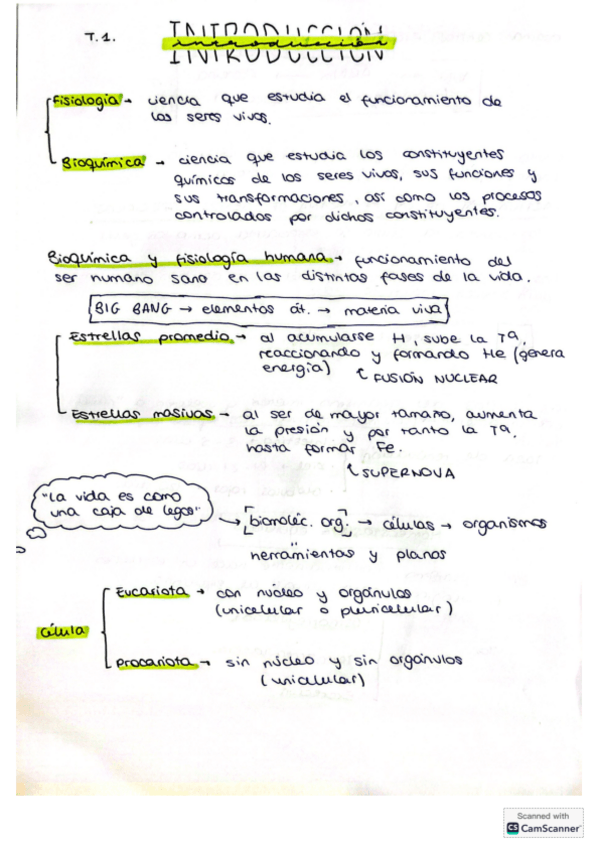 T.1. INTRODUCCIÓN
introducción
Fisiología → ciencia que estudia el funcionamiento de
los seres vivos.
Bioquímica → ciencia que estudia los constituyentes
químicos de los seres vivos, sus funciones y
sus transformaciones, así como los procesos
controlados por dichos constituyentes.
Bioquímica y fisiología humana → funcionamiento del
ser humano sano en las distintas fases de la vida.
BIG BANG → elementos át. → materia viva
Estrellas promedio → al acumularse H, sube la Tª,
reaccionando y formando He (genera
energía) FUSIÓN NUCLEAR
Estrellas masivas → al ser de mayor tamaño, aumenta
la presión y por tanto la Tª,
hasta formar Fe.
SUPERNOVA
"La vida es como
una caja de legos"
→ [biomoléc. org.] → células → organismos
herramientas y planos
Célula
Eucariota → con núcleo y orgánulos
(unicelular o pluricelular)
Procariota → sin núcleo y sin orgánulos
(unicelular)
Scanned with
CS CamScanner